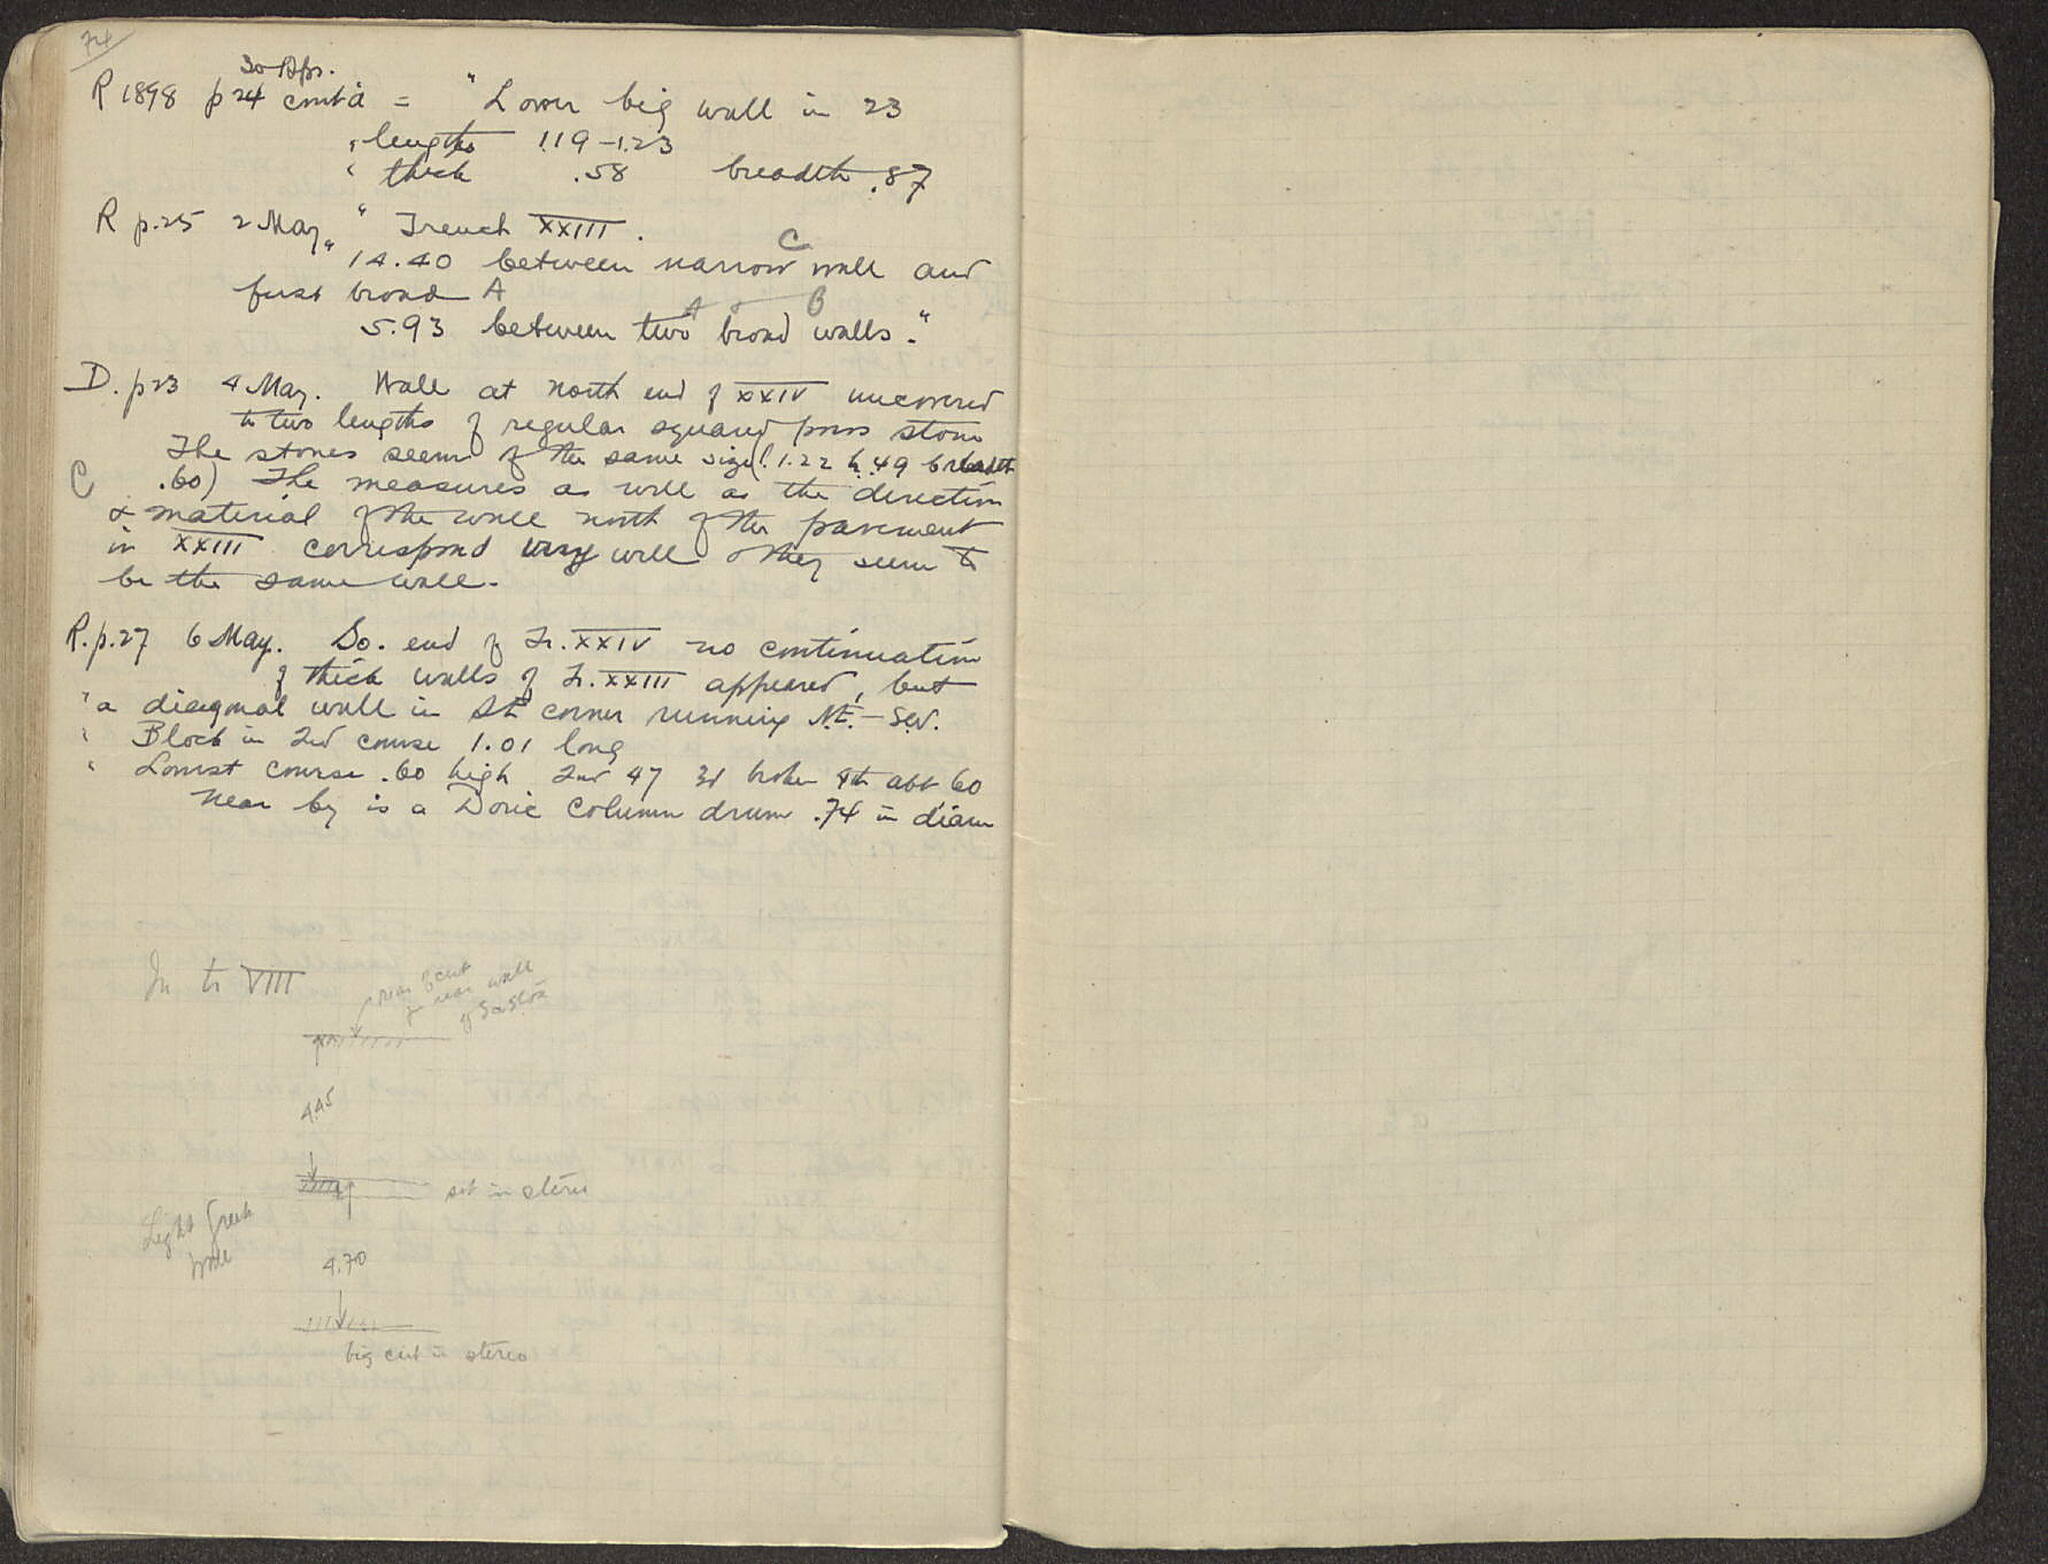 74
30 Apr.
R 1898 p 24 cont'd = "Lower big wall in 23
" lengths 1.19-1.23
" thick .58 breadth .87
R p.25 2 May " Trench XXIII.
C
" 14.40 between narrow wall and
first broad A
A & B
5.93 between two broad walls."
D. p23 4 May. Wall at north end of XXIV uncovered
to two lengths of regular squared poros stone
The stones seem of the same size (l. 1.22 h .49 breadth
C .60) The measures as well as the direction
& material of the wall north of the pavement
in XXIII correspond very well & they seem to
be the same wall.
R. p.27 6 May. So. end of Tr. XXIV no continuation
of thick walls of Tr. XXIII appeared, but
" a diagonal wall in SE corner running N.E.-S.W.
" Block in 2nd course 1.01 long
" Lowest course .60 high 2nd 47 3d broken 4th abt 60
Near by is a Doric column drum .74 in diam
In tr VIII
rear of cut
for rear wall
of So Stoa
4.45
set in stereo
Light Greek
wall
4.70
big cut in stereo